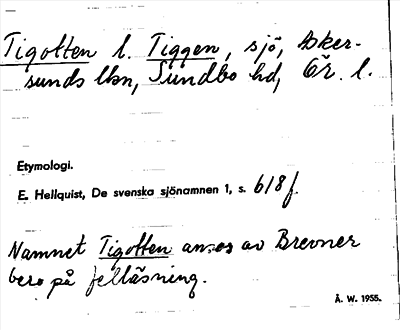 Tigotten l. Tiggen, sjö, Asker-
sunds lkn, Sundbo hd, Ör. l.
Etymologi.
E. Hellquist, De svenska sjönamnen 1, s. 618 f
Namnet Tigotten anses av Brevner
bero på felläsning.
Å. W. 1955.